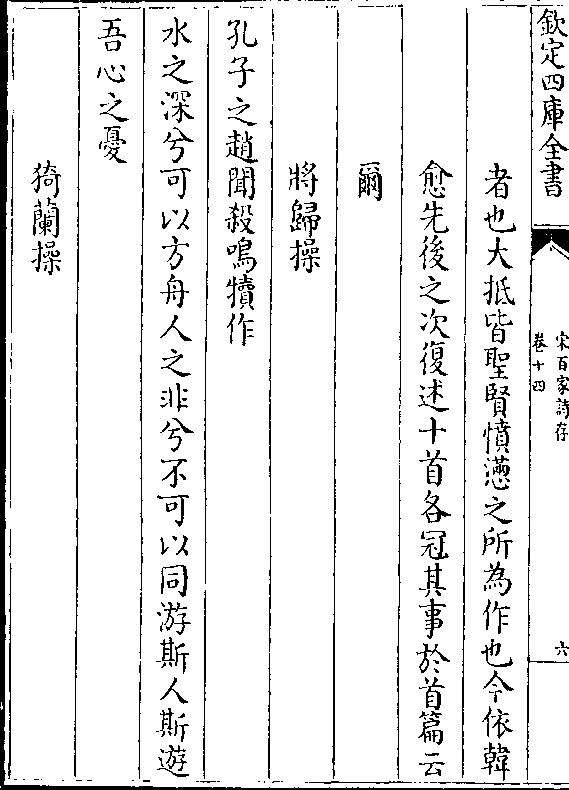 欽定四庫全書
宋百家詩存
卷十四
六
者也大抵皆聖賢憤懣之所為作也今依韓
愈先後之次復述十首各冠其事於首篇云
爾
將歸操
孔子之趙聞殺鳴犢作
水之深兮可以方舟人之非兮不可以同游斯人斯遊
吾心之憂
猗蘭操